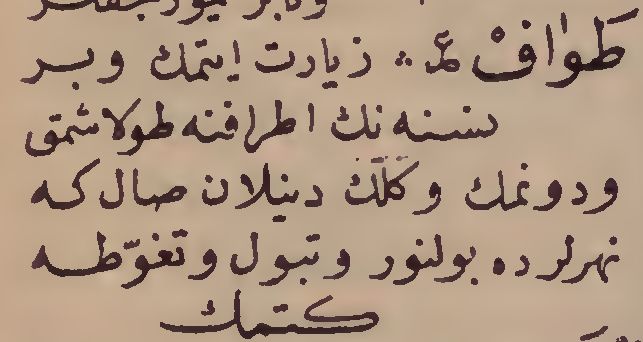 طَوٰافْ ع زيارت ايتمك وبر
نسنه نك اطرافنه طولاشمق
ودونمك وكلّك دينلان صال كه
نهرلرده بولنور وتبول وتغوّطه
كتمك